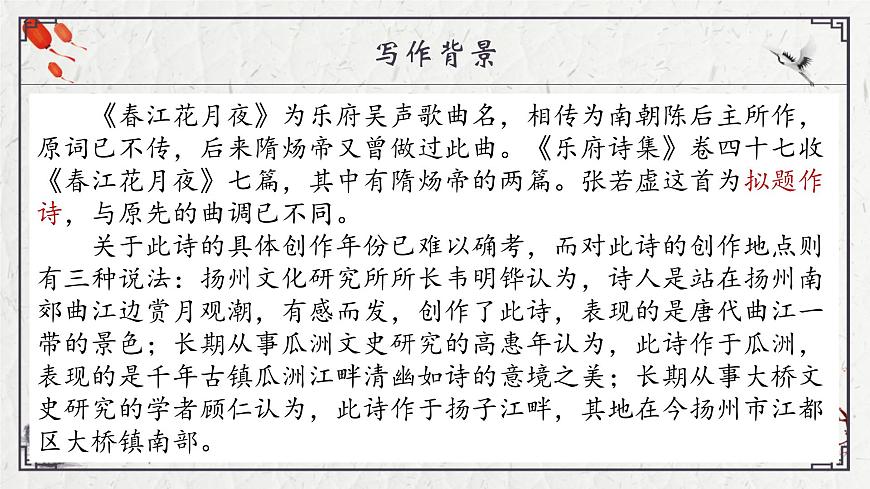 写作背景
《春江花月夜》为乐府吴声歌曲名，相传为南朝陈后主所作，
原词已不传，后来隋炀帝又曾做过此曲。《乐府诗集》卷四十七收
《春江花月夜》七篇，其中有隋炀帝的两篇。张若虚这首为拟题作
诗，与原先的曲调已不同。
关于此诗的具体创作年份已难以确考，而对此诗的创作地点则
有三种说法：扬州文化研究所所长韦明铧认为，诗人是站在扬州南
郊曲江边赏月观潮，有感而发，创作了此诗，表现的是唐代曲江一
带的景色；长期从事瓜洲文史研究的高惠年认为，此诗作于瓜洲，
表现的是千年古镇瓜洲江畔清幽如诗的意境之美；长期从事大桥文
史研究的学者顾仁认为，此诗作于扬子江畔，其地在今扬州市江都
区大桥镇南部。